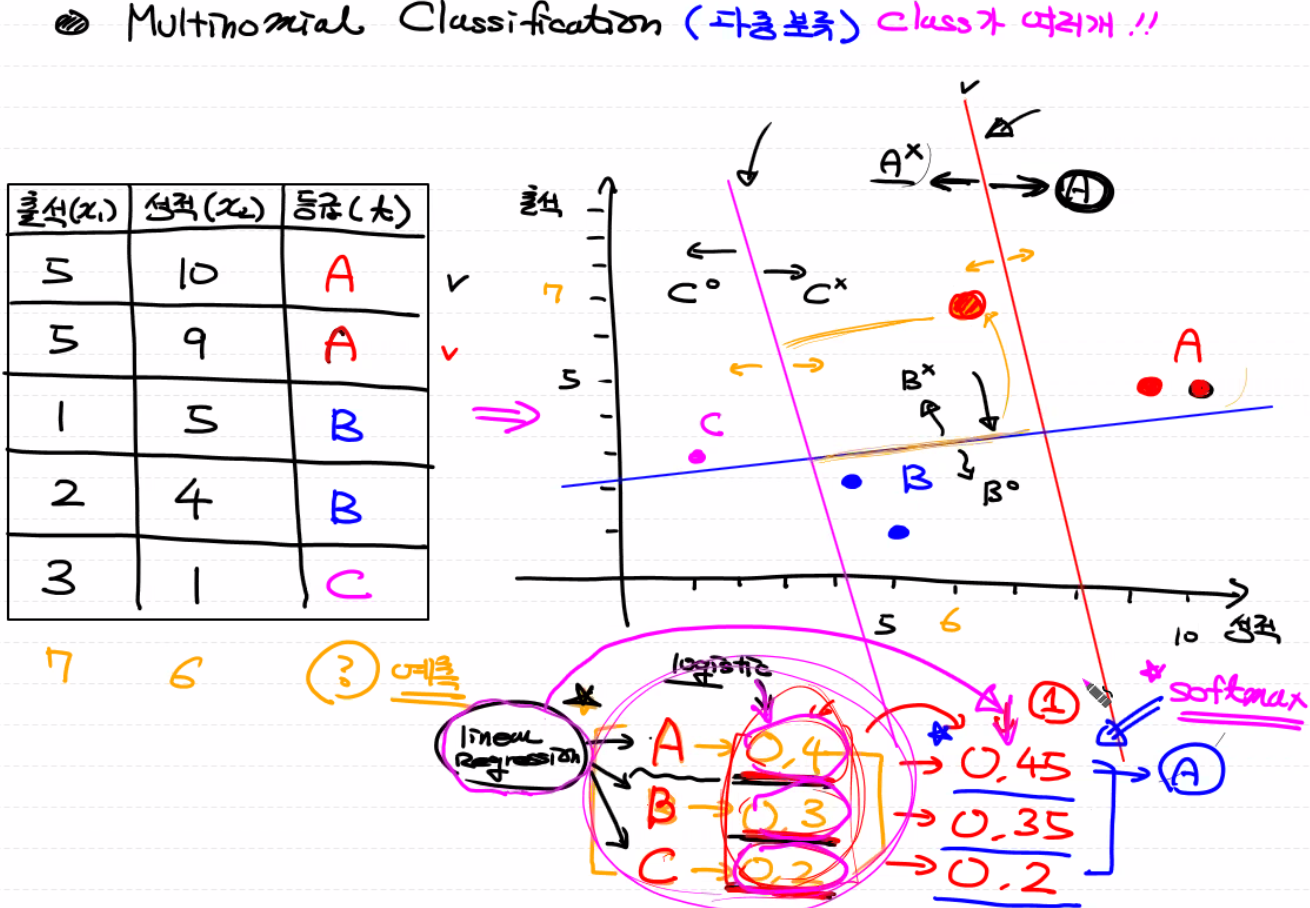 Multinomial Classification (다중분류) Class가 여러개!!
출석(x₁) 성적(x₂) 등급(t)
5 10 A
5 9 A
1 5 B
2 4 B
3 1 C
7 6 ? 예측
출석
7
5
5 6 10 성적
A× A
C° C×
A
B×
C
B
B°
logistic
linear Regression
A → 0.4 → 0.45
B → 0.3 → 0.35
C → 0.2 → 0.2
1
softmax
A